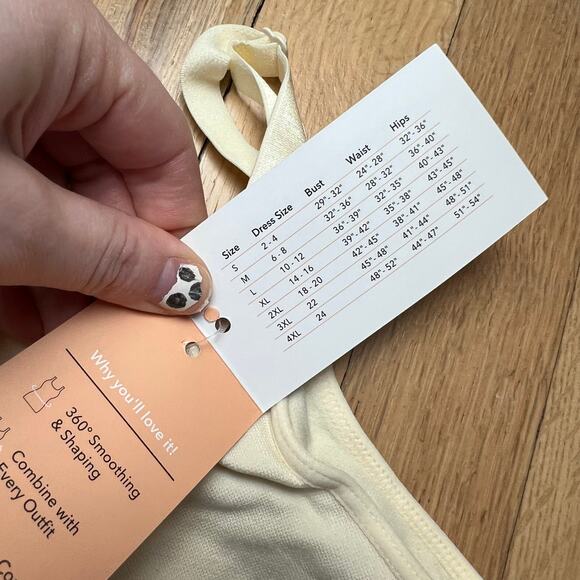 Size Dress Size Bust Waist Hips
S 2 - 4 29"- 32" 24"- 28" 32"- 36"
M 6 - 8 32"- 36" 28"- 32" 36"- 40"
L 10 - 12 36"- 39" 32"- 35" 40"- 43"
XL 14 - 16 39"- 42" 35"- 38" 43"- 45"
2XL 18 - 20 42"- 45" 38"- 41" 45"- 48"
3XL 22 45"- 48" 41"- 44" 48"- 51"
4XL 24 48"- 52" 44"- 47" 51"- 54"
Why you'll love it!
360° Smoothing
& Shaping
Combine with
Every Outfit